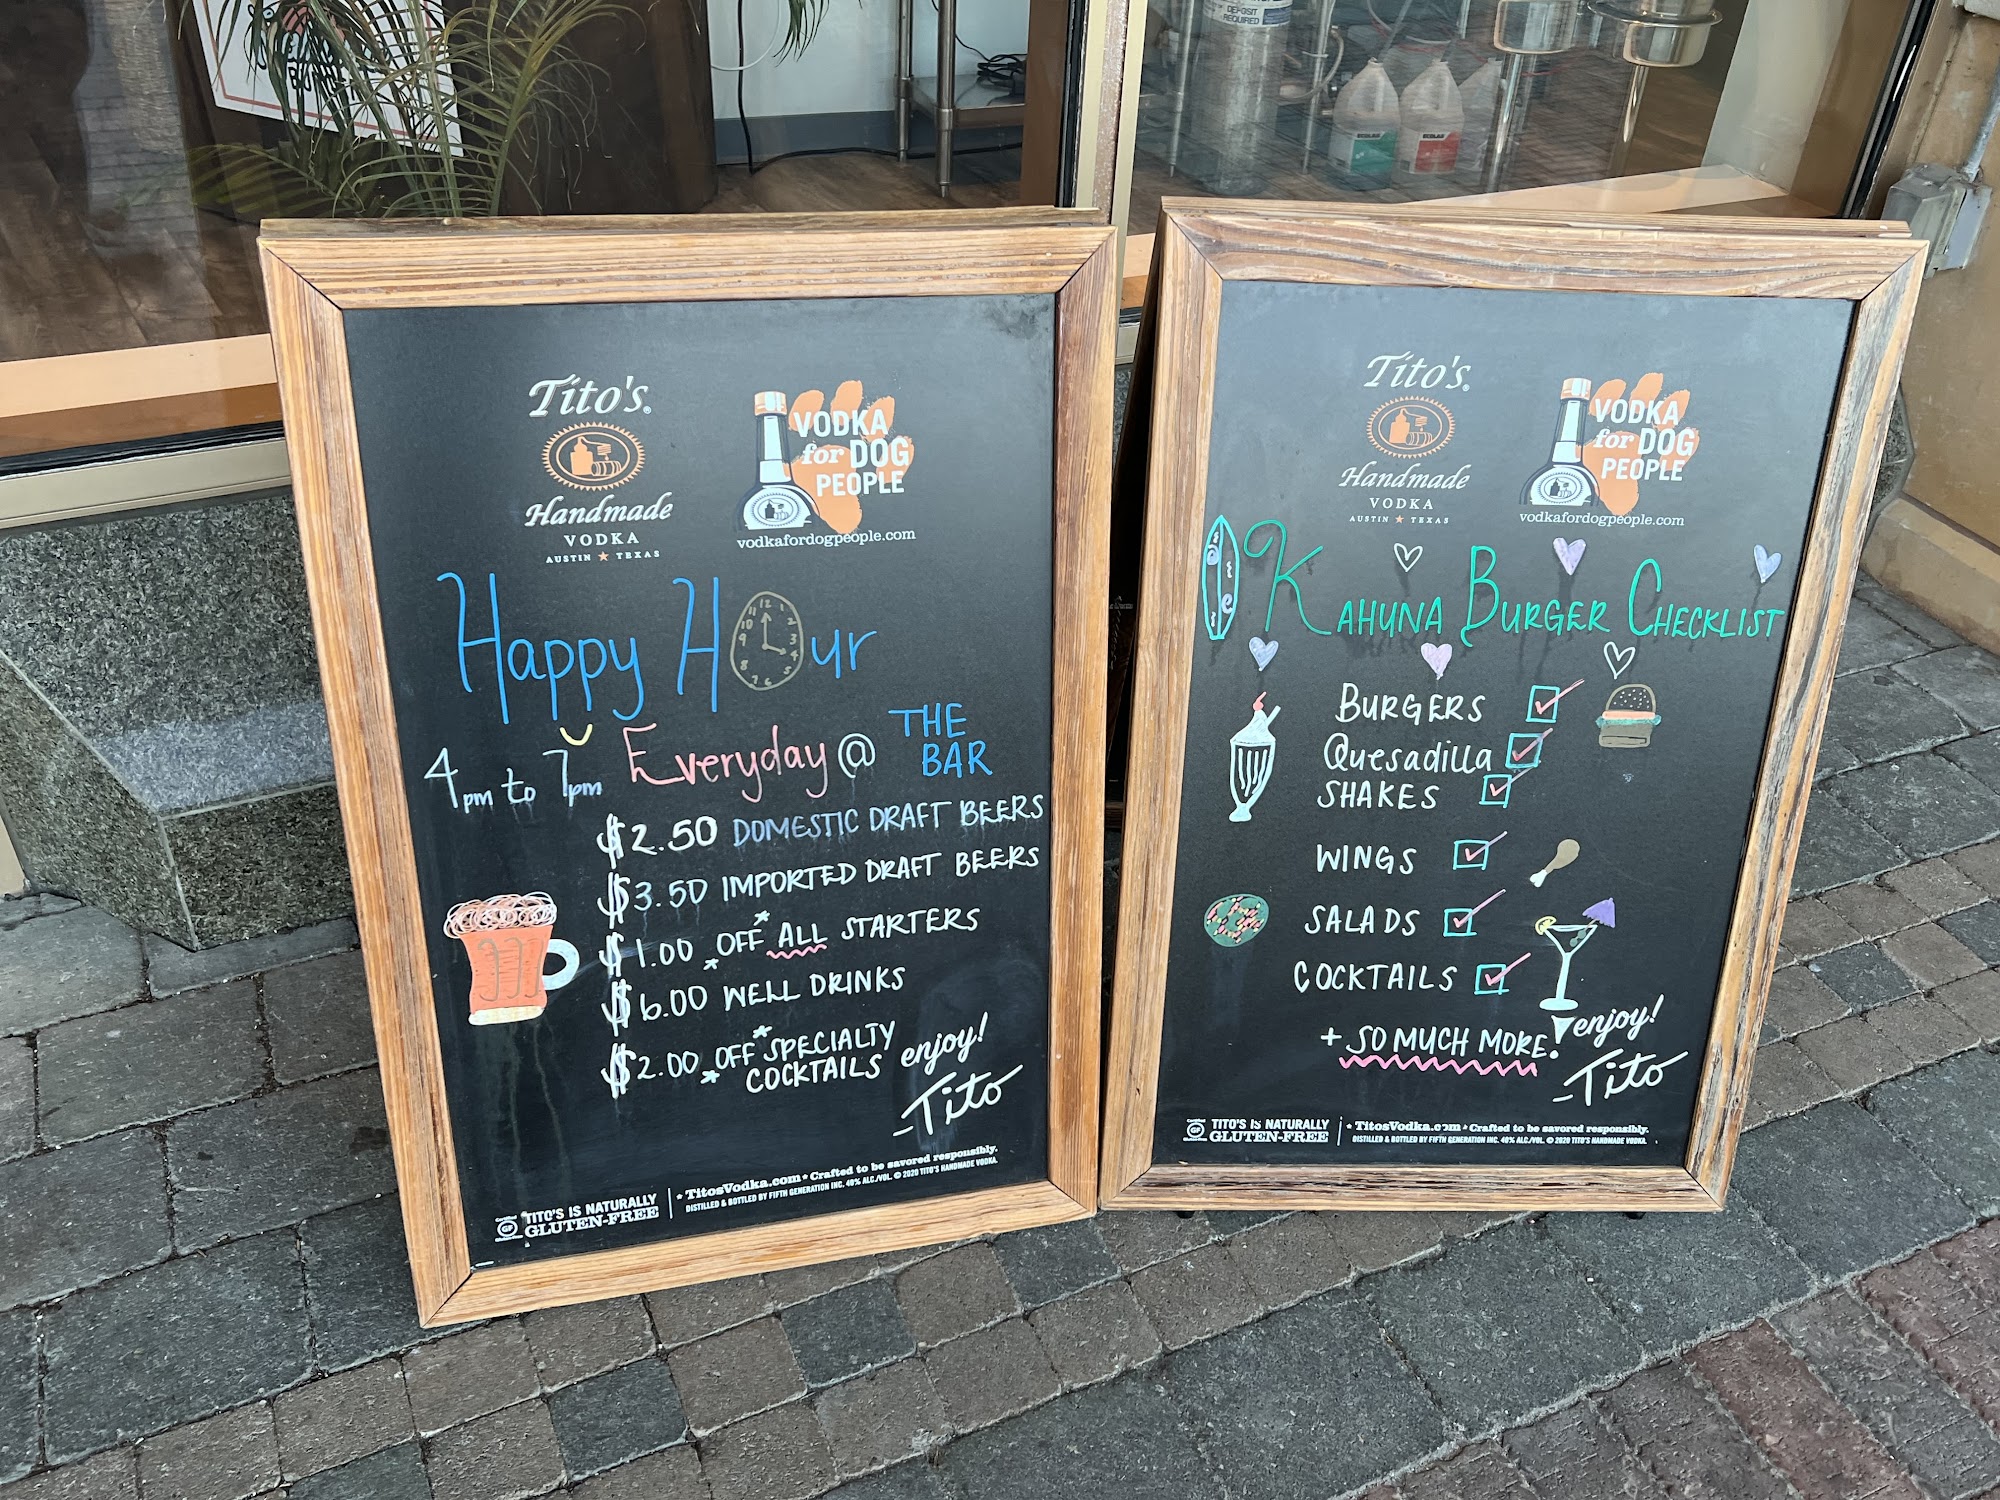 DEPOSIT
REQUIRED
ECOLAB
ECOLAB
Tito's®
Handmade
VODKA
AUSTIN ★ TEXAS
VODKA
for DOG
PEOPLE
vodkafordogpeople.com
Happy Hour
12 1 2 3 4 5 6 7 8 9 10 11
4pm to 7pm Everyday @ THE
BAR
$2.50 DOMESTIC DRAFT BEERS
$3.50 IMPORTED DRAFT BEERS
$1.00 *OFF* ALL STARTERS
$6.00 WELL DRINKS
$2.00 *OFF* SPECIALTY
COCKTAILS
enjoy!
-Tito
Certified
GF
Gluten-Free
TITO'S IS NATURALLY
GLUTEN-FREE
* TitosVodka.com * Crafted to be savored responsibly.
DISTILLED & BOTTLED BY FIFTH GENERATION INC. 40% ALC./VOL. © 2020 TITO'S HANDMADE VODKA.
Tito's®
Handmade
VODKA
AUSTIN ★ TEXAS
VODKA
for DOG
PEOPLE
vodkafordogpeople.com
KAHUNA BURGER CHECKLIST
BURGERS
Quesadilla
SHAKES
WINGS
SALADS
COCKTAILS
+ SO MUCH MORE!
enjoy!
-Tito
Certified
GF
Gluten-Free
TITO'S IS NATURALLY
GLUTEN-FREE
* TitosVodka.com * Crafted to be savored responsibly.
DISTILLED & BOTTLED BY FIFTH GENERATION INC. 40% ALC./VOL. © 2020 TITO'S HANDMADE VODKA.